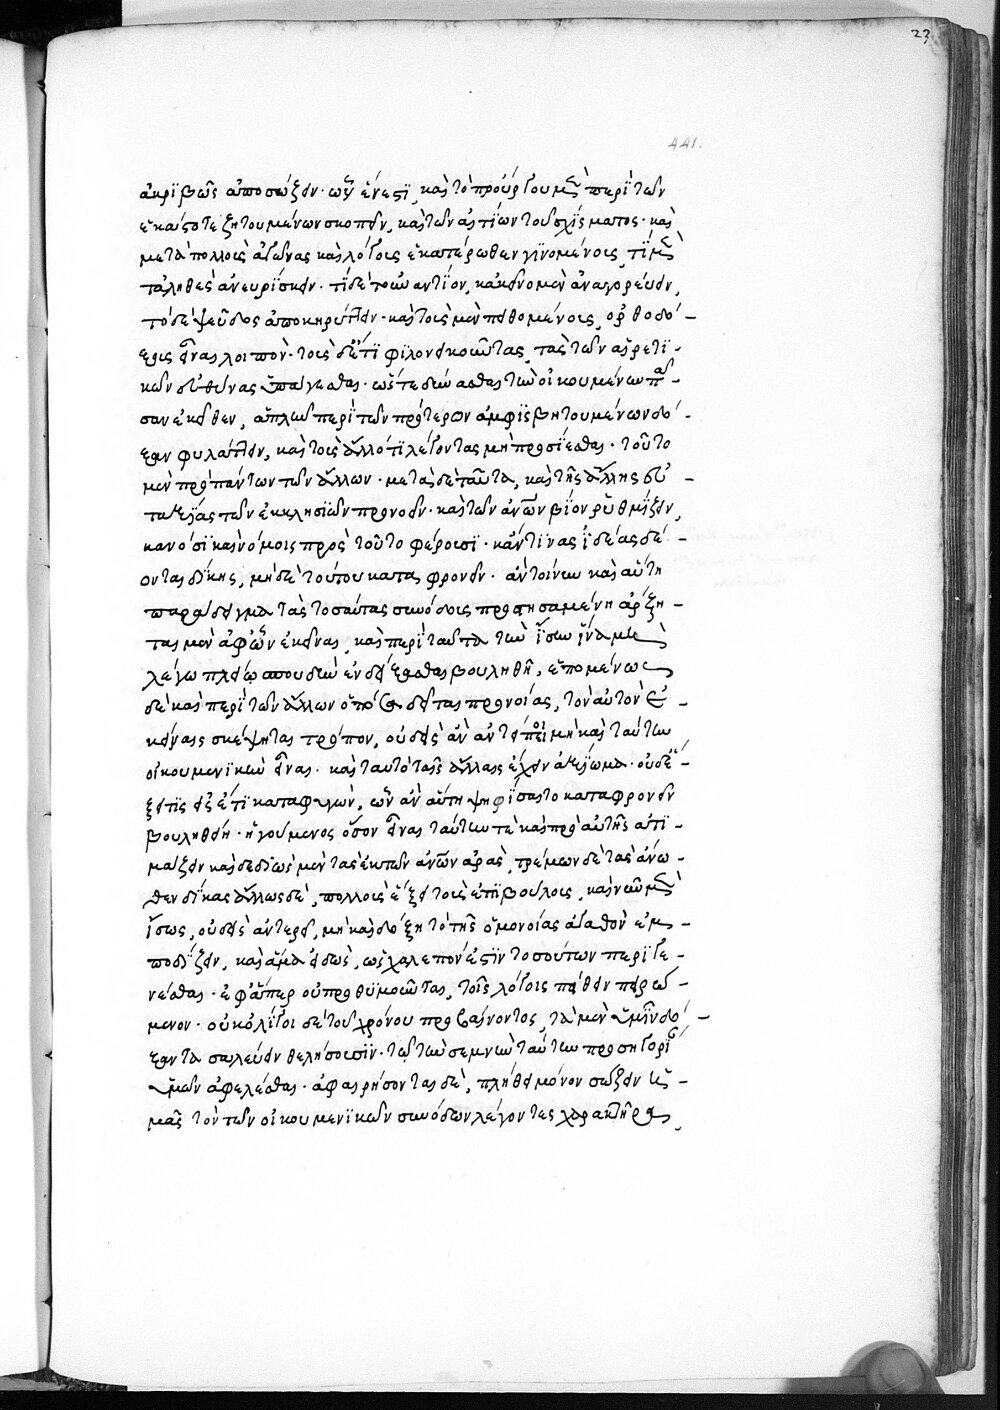 23
441.
ἀκριβῶς ἀποσώζειν. ὧν ἔνεστι, καὶ τὸ προὔργου μὲν περὶ τῶν
ἑκάστοτε ζητουμένων σκοπεῖν, καὶ τῶν αἰτίων τοῦ σχίσματος. καὶ
μετὰ πολλοὺς ἀγῶνας καὶ λόγους ἑκατέρωθεν γινομένους, τί μὲν
τἀληθὲς ἀνευρίσκειν. τί δὲ τοὐναντίον, κἀκεῖνο μὲν ἀναγορεύειν,
τὸ δὲ ψεῦδος ἀποκηρύττειν. καὶ τοὺς μὲν πειθομένους, ὀρθοδό-
ξους εἶναι λοιπόν. τοὺς δ' ἔτι φιλονεικοῦντας, ταῖς τῶν αἱρετι-
κῶν εὐθύναις ὑπάγεσθαι. ὥστε δυνασθαι τὴν οἰκουμένην πᾶ-
σαν ἐκεῖθεν, ἁπλῶς περὶ τῶν πρότερον ἀμφισβητουμένων δό-
ξαν φυλάττειν, καὶ τοὺς ἄλλό τι λέγοντας μὴ προσίεσθαι. τοῦτο
μὲν πρὸ πάντων τῶν ἄλλων. μετὰ δὲ ταῦτα, καὶ τῆς ἄλλης εὐ-
ταξίας τῶν ἐκκλησιῶν προνοεῖν. καὶ τῶν ἀνων βίον ῥυθμίζειν,
κανόσι καὶ νόμοις πρὸς τοῦτο φέρουσι. κἄν τινας ἴδε ἀσδέ-
οντας δίκης, μηδὲ τούτου καταφρονεῖν. ἂν τοίνυν καὶ αὕτη
παράδειγμα τὰς τοσαύτας συνόδους προστησαμένη ἄρξη-
ται μὲν ἀφ' ὧν ἐκεῖναι, καὶ περὶ ταῦτα τὴν ἴσην ἵνα μὴ
λέγω πλείω σπουδὴν ἐνδείξασθαι βουληθῆ, ἑπομένως
δὲ καὶ περὶ τῶν ἄλλων ὁπόσα δεῖται προνοίας, τὸν αὐτὸν ἐ-
κείναις σκέψηται τρόπον, οὐδεὶς ἂν ἀντείποι μὴ καὶ ταύτην
οἰκουμενικὴν εἶναι. καὶ ταυτὸ ταῖς ἄλλαις ἔχειν ἀξίωμα. οὐδὲ-
ξει τις εἰς ἔτι καταφυγὼν, ὧν ἂν αὕτη ψηφίσαιτο καταφρονεῖν
βουληθείη. ἡγούμενος ὅσον εἶναι ταύτην τε καὶ πρὸ αὐτῆς ἀτι-
μάζειν καὶ δεδιὼς μὲν τὰς ἐκ τῶν ἀνων ἀρὰς, τρέμων δὲ τὰς ἄνω-
θεν δίκας ἄλλως δὲ, πολλοῖς ἔξει τοὺς ἐπιβούλους, καὶ νῦν μὲν
ἴσως, οὐδεὶς ἀντερεῖ, μὴ καὶ δόξη τὸ τῆς ὁμονοίας ἀγαθὸν ἐμ-
ποδίζειν, καὶ ἅμα εἰδὼς, ὡς χαλεπόν ἐστιν τοσούτων περιγε-
νέσθαι. ἐφ' ἅπερ οὐ προθυμοῦνται, τοῖς λόγοις πείθειν πειρώ-
μενον. οὐκ ὀλίγοι δὲ τοῦ χρόνου προβαίνοντος, τὰ μὲν ὑμῖν δό-
ξαντα σαλεύειν θελήσουσιν. τῶ τὴν σεμνὴν ταύτην προσηγορί
ὑμῶν ἀφελέσθαι. ἀφαιρήσονται δὲ, πλήθει μόνον σώζειν ὑ-
μᾶς τὸν τῶν οἰκουμενικῶν συνόδων λέγοντες χαρακτῆρα,